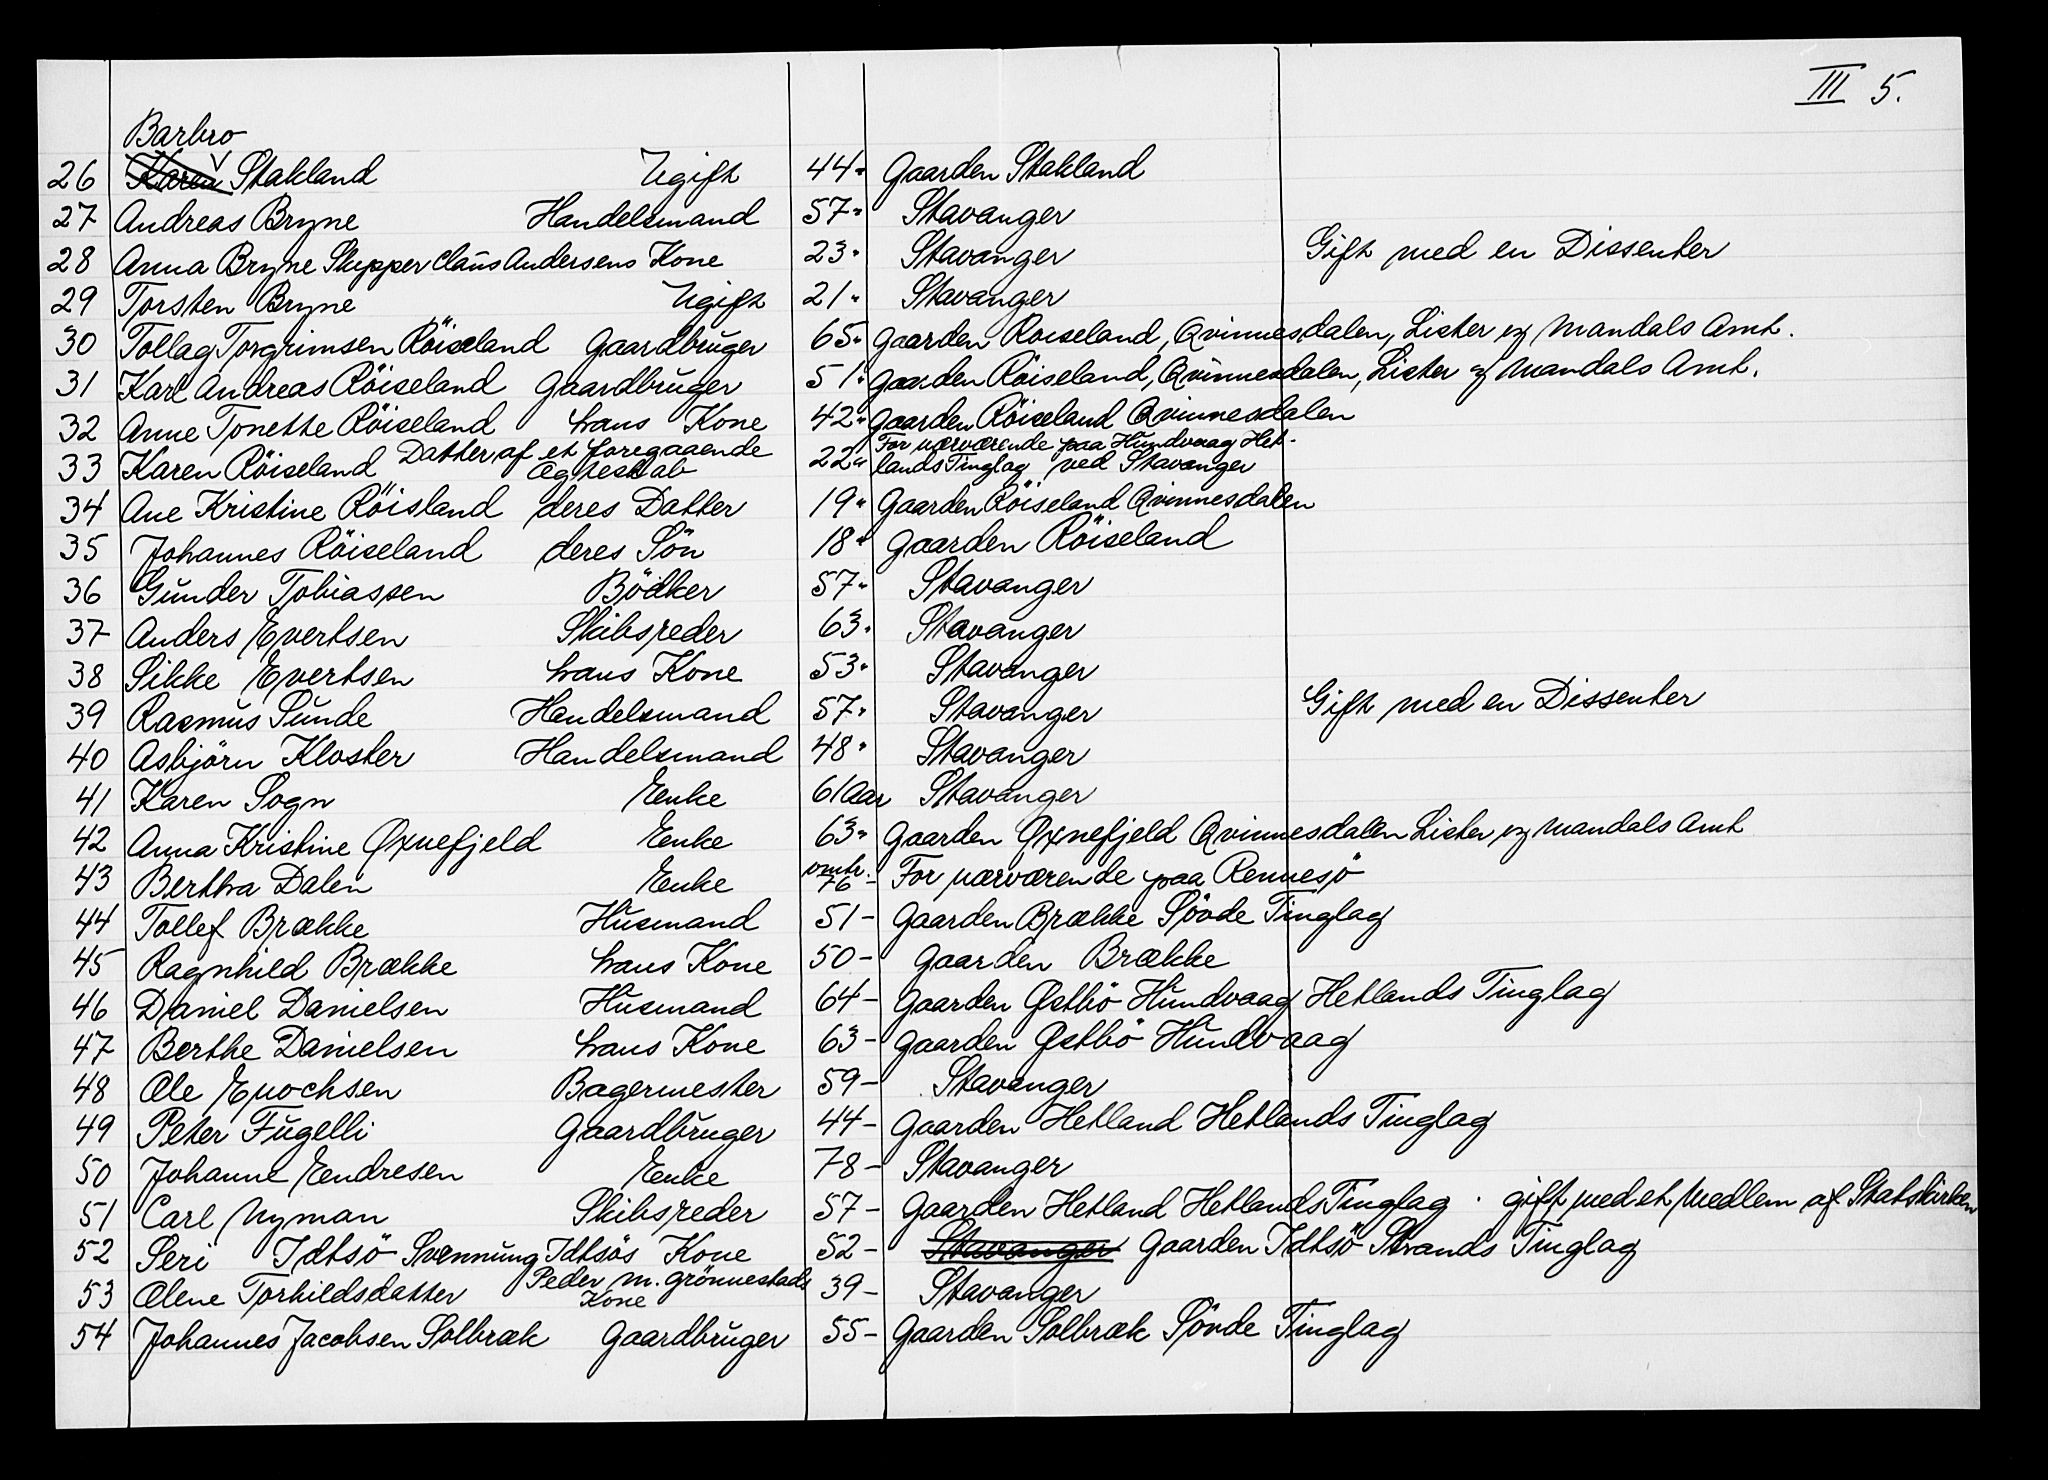 III 5.
Barbro
26 Karen Stakland Ugift 44" Gaarden Stakland
27 Andreas Bryne Handelsmand 57" Stavanger
28 Anna Bryne Skipper Claus Andersens Kone 23" Stavanger Gift med en Dissenter
29 Torsten Bryne Ugift 21" Stavanger
30 Tollag Torgrimsen Röiseland Gaardbruger 65" Gaarden Roiseland, Qvinnesdalen, Lister og Mandals Amt.
31 Karl Andreas Röiseland Gaardbruger 51" Gaarden Röiseland, Qvinnesdalen, Lister og Mandals Amt.
32 Anne Tonette Röiseland hans Kone 42" Gaarden Röiseland Qvinnesdalen
33 Karen Röiseland Datter af et foregaaende Ægteskab 22" For nærværende paa Hundvaag Het-
lands Tinglag ved Stavanger
34 Ane Kristine Röisland deres Datter 19" Gaarden Röiseland Qvinnesdalen
35 Johannes Röiseland deres Sön 18" Gaarden Röiseland
36 Gunder Tobiassen Bödker 57" Stavanger
37 Anders Evertsen Skibsreder 63" Stavanger
38 Sikke Evertsen hans Kone 53" Stavanger
39 Rasmus Sunde Handelsmand 57" Stavanger Gift med en Dissenter
40 Asbjörn Kloster Handelsmand 48" Stavanger
41 Karen Sogn Enke 61 Aar Stavanger
42 Anna Kristine Øxnefjeld Enke 63" Gaarden Øxnefjeld Qvinnesdalen Lister og Mandals Amt
43 Bertha Dalen Enke omtr. 76 - For nærværende paa Rennesö
44 Tollef Brække Husmand 51 - Gaarden Brække Sövde Tinglag
45 Ragnhild Brække hans Kone 50 - Gaarden Brække
46 Daniel Danielsen Husmand 64 - Gaarden Østbö Hundvaag Hetlands Tinglag
47 Berthe Danielsen hans Kone 63 - Gaarden Østbö Hundvaag
48 Ole Enochsen Bagermester 59 - Stavanger
49 Peter Fugelli Gaardbruger 44 - Gaarden Hetland Hetlands Tinglag
50 Johanne Eendresen Enke 78 - Stavanger
51 Carl Nyman Skibsreder 57 - Gaarden Hetland Hetlands Tinglag. gift med et Medlem af Statskirken
52 Seri Idtsö Svennung Idtsös Kone 52 - Stavanger Gaarden Idtsö Strands Tinglag
53 Olene Torhildsdatter Peder M. Grönnestads Kone 39 - Stavanger
54 Johannes Jacobsen Solbræk Gaardbruger 55 - Gaarden Solbræk Sövde Tinglag